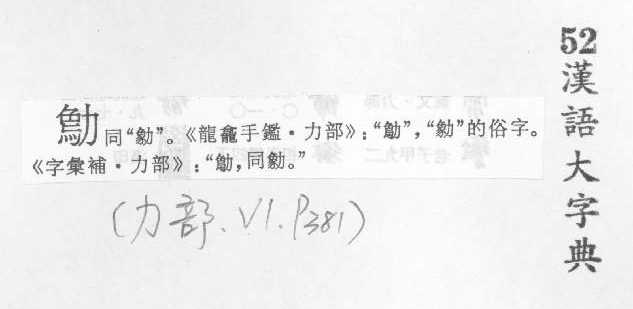 52漢語大字典
同“勨”。《龍龕手鑑·力部》：“”，“勨”的俗字。
《字彙補·力部》：“，同勨。”
(力部.VI.P381)